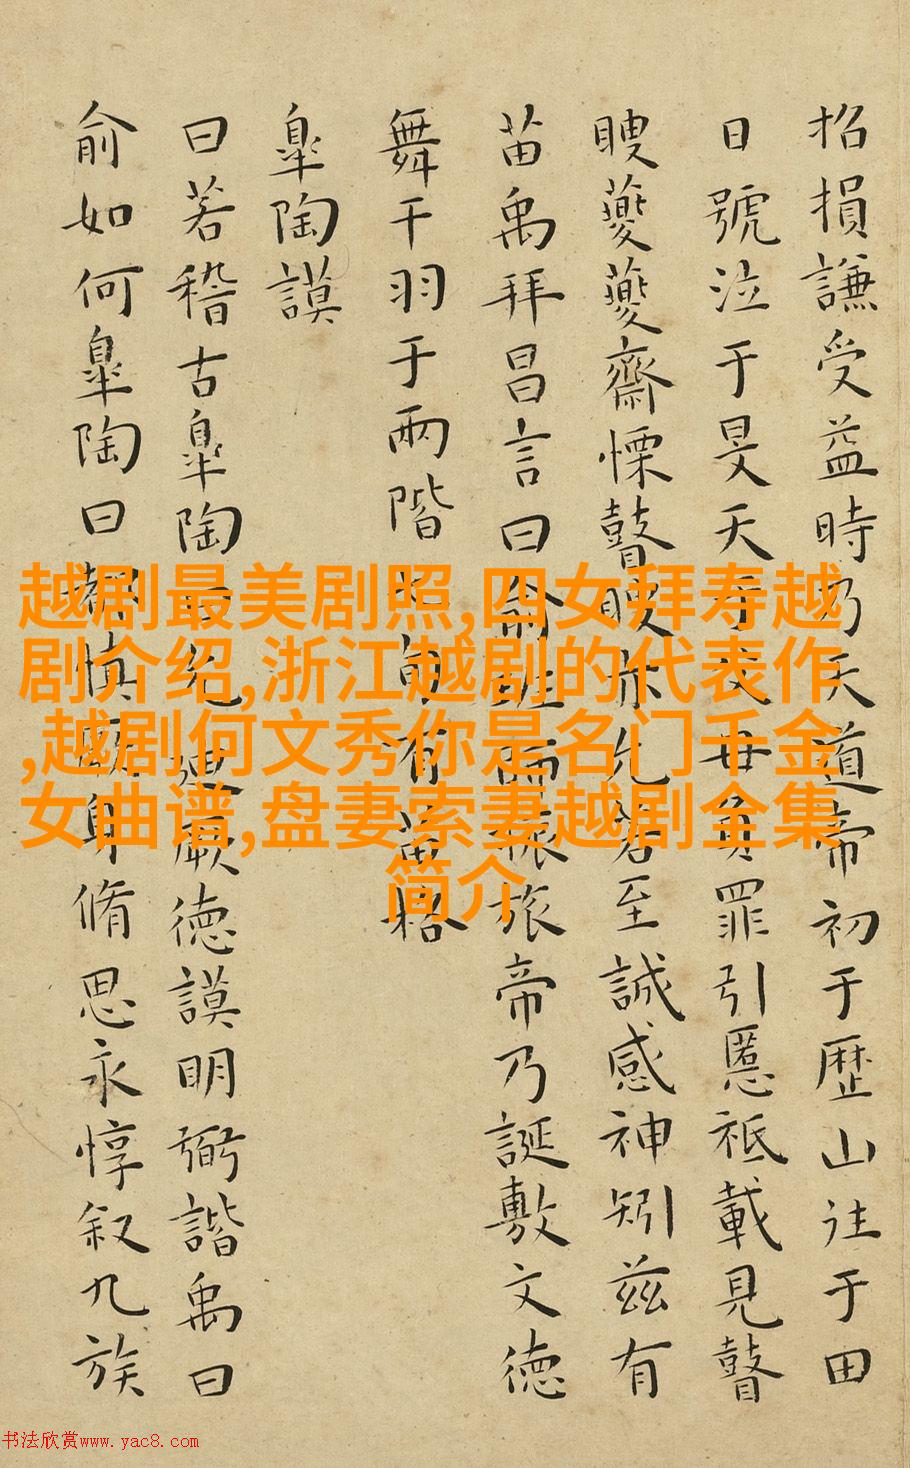 招損謙受益時乃天道帝初于歴山往于田
日號泣于旻天于父母負罪引慝祗載見瞽
瞍夔夔齋慄瞽瞍亦允若至誠感神矧兹有
苗禹拜昌言曰俞班師振旅帝乃誕敷文德
舞干羽于兩階七旬有苗格
皐陶謨
曰若稽古皐陶曰允迪厥德謨明弼諧禹曰
俞如何皐陶曰都慎厥身脩思永惇叙九族
越剧最美剧照,四女拜寿越
剧介绍,浙江越剧的代表作
,越剧何文秀你是名门千金
女曲谱,盘妻索妻越剧全集
简介
书法欣赏www.yac8.com